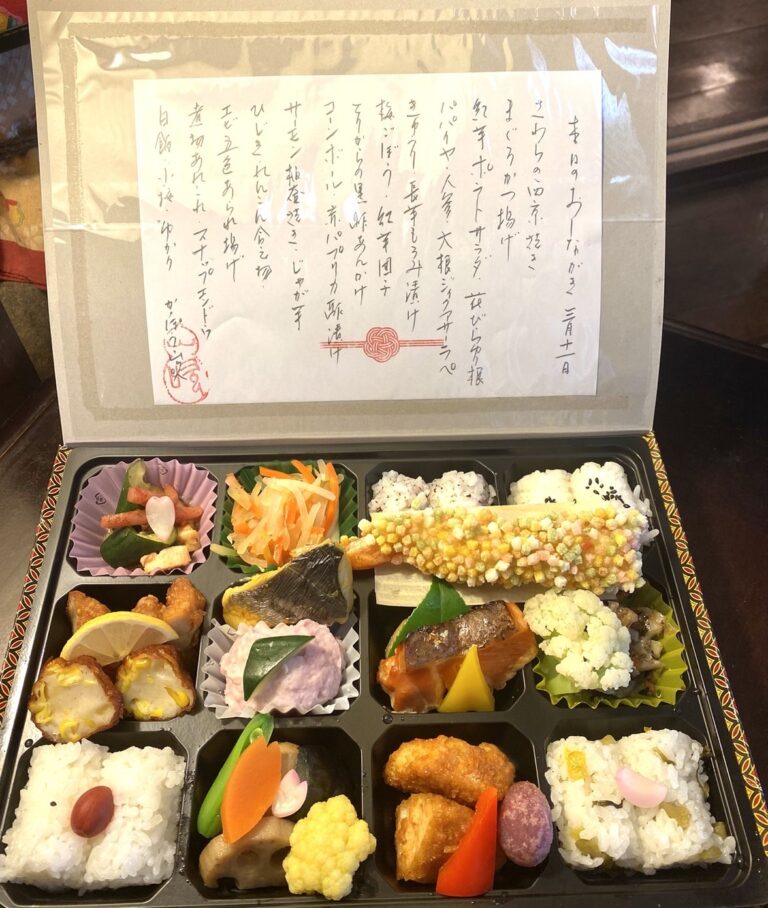 春日のおしながき 三月十一日
さわらの西京焼き
まぐろかつ揚げ
紅芋ポテトサラダ 花びら百合根
パパイヤ 人参 大根シクアサーラペ
きゅうり 長芋もろみ漬け
梅ごぼう 紅芋団子
とりからの黒酢あんかけ
コーンボール 赤パプリカ酢漬け
サーモン柚庵焼き じゃが芋
ひじきれんこん合え物
エビ五色あられ揚げ
煮物あれこれ スナップエンドウ
白飯 小梅 ゆかり
かっぽう